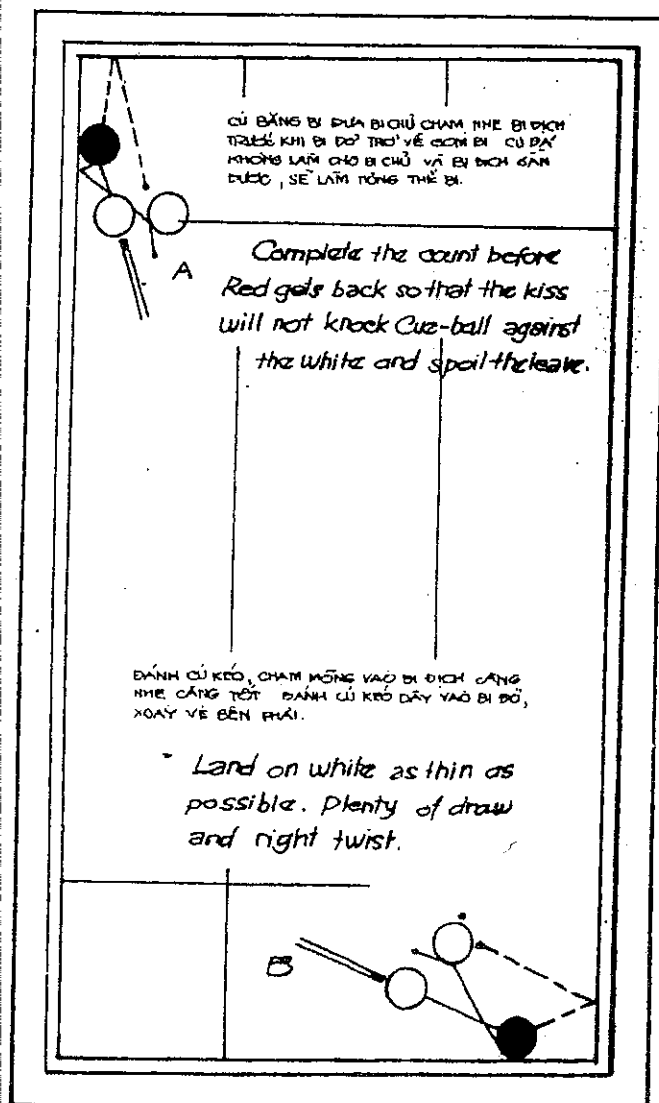 CÚ BĂNG BI ĐƯA BI CHỦ CHẠM NHẸ BI ĐỊCH
TRƯỚC KHI BI ĐỎ TRỞ VỀ GOM BI CÚ ĐÁ
KHÔNG LÀM CHO BI CHỦ VÀ BI ĐỊCH GẦN
ĐƯỢC, SẼ LÀM HỎNG THẾ BI.
A
Complete the count before
Red gets back so that the kiss
will not knock Cue-ball against
the white and spoil the leave.
ĐÁNH CÚ KÉO, CHẠM MỎNG VÀO BI ĐỊCH CÀNG
NHẸ CÀNG TỐT ĐÁNH CÚ KÉO DÀY VÀO BI ĐỎ,
XOÁY VỀ BÊN PHẢI.
Land on white as thin as
possible. Plenty of draw
and right twist.
B